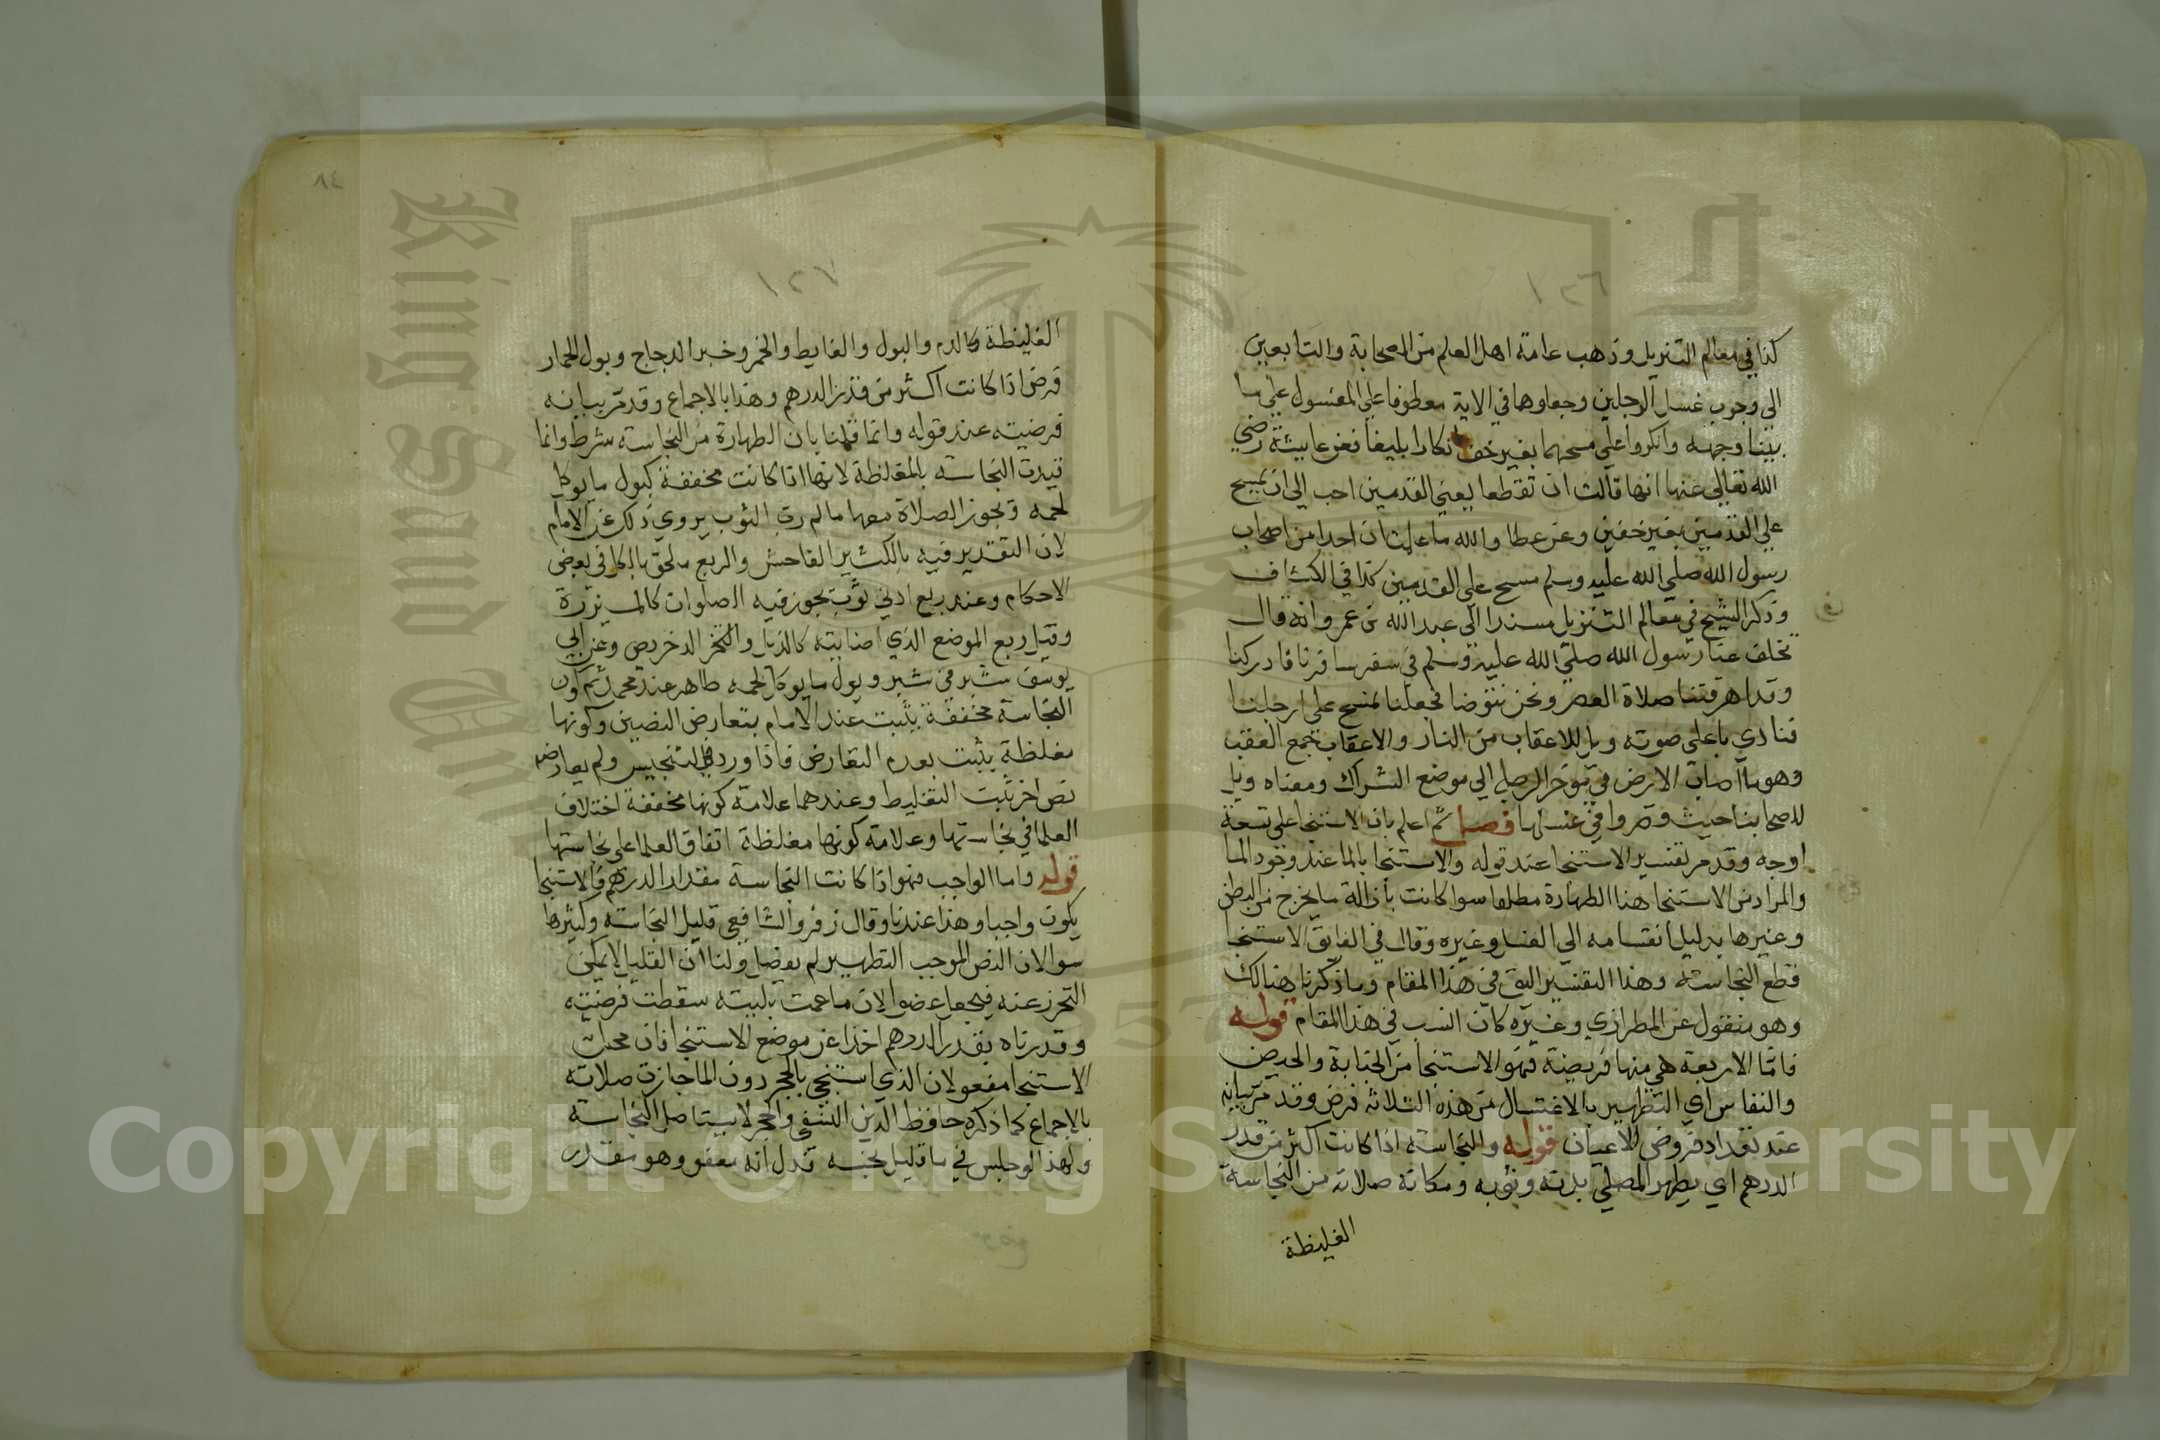 ١٢٦
كذا في معالم التنزيل وذهب عامة اهل العلم من الصحابة والتابعين
الى وجوب غسل الرجلين وجعلوها في الاية معطوفا على المغسول على ما
بينا وجهه وانكروا على مسحهما بغير خف انكارا بليغا فعن عايشة رضي
الله تعالى عنها انها قالت ان تقطعا يعني القدمين احب الي ان يمسح
على القدمين بغير خفين وعن عطا والله ما علمت ان احدا من اصحاب
رسول الله صلى الله عليه وسلم مسح على القدمين كذا في الكشاف
وذكر الشيخ في معالم التنزيل مسندا الى عبد الله بن عمرو انه قال
تخلف عنا رسول الله صلى الله عليه وسلم في سفر سافرنا فادركنا
وقد ارهقتنا صلاة العصر ونحن نتوضا فجعلنا نمسح على ارجلنا
فنادى باعلى صوته ويل للاعقاب من النار والاعقاب جمع العقب
وهو ما اصاب الارض في موخر الرجل الي موضع الشراك ومعناه ويل
لاصحابنا حيث قصروا في غسلها فصل ثم اعلم بان الاستنجا على تسعة
اوجه وقد مر تفسير الاستنجا عند قوله والاستنجا بالما عند وجود الما
والمراد من الاستنجا هنا الطهارة مطلقا سوا كانت بازالة ما يخرج من البطن
وغيرها بدليل انقسامه الي الغسل وغيره وقال في الفايق الاستنجا
قطع النجاسة وهذا التفسير اليق في هذا المقام وما ذكرنا هنالك
وهو منقول عن المطرازي وغيره كان انسب في هذا المقام قوله
فاما الاربعة هي منها فريضة فهو الاستنجا من الجنابة والحيض
والنفاس اي التطهير بالاغتسال من هذه الثلاثة فرض وقد مر بيانه
عند تعداد فروض الاعيان قوله والنجاسة اذا كانت اكثر من قدر
الدرهم اي يطهر المصلي بدنه وثوبه ومكانه صلاته من النجاسة
الغليظة
٨٤
١٢٧
الغليظة كالدم والبول والغايط والخمر وخبر الدجاج وبول الحمار
فرض اذا كانت اكثر من قدر الدرهم وهذا بالاجماع وقد مر بيانه
فرضيته عند قوله وانما قلنا بان الطهارة من النجاسة شرط وانما
قيدت النجاسة بالمغلظة لانها اذا كانت مخففة كبول ما يوكل
لحمه تجوز الصلاة معها ما لم ربع الثوب يروي ذلك عن الامام
لان التقدير فيه بالكثير الفاحش والربع ملحق بالكل في بعض
الاحكام وعنه ربع ادني ثوب تجوز فيه الصلوات كالميزرة
وقيل ربع الموضع الذي اصابته كالذيل والدخريص وعن ابي
يوسف شبر في شبر وبول ما يوكل لحمه طاهر عند محمد ثم كون
النجاسة مخففة يثبت عند الامام بتعارض النصين وكونها
مغلظة يثبت بعدم التعارض فاذا ورد التنجيس ولم يعارضه
نص اخر ثبت التغليظ وعندهما علامة كونها مخففة اختلاف
العلما في نجاستها وعلامة كونها مغلظة اتفاق العلما على نجاستها
قوله واما الواجب فهو اذا كانت النجاسة مقدار الدرهم فالاستنجا
يكون واجبا وهذا عندنا وقال زفر والشافعي قليل النجاسة وكثيرها
سوا لان النص الموجب التطهير لم يفصل ولنا ان القليل لا يمكن
التحرز عنه فيجعل عفوا لان ما عمت بليته سقطت فرضيته
وقدرناه بقدر الدرهم اخذا عن موضع الاستنجا فان محل
الاستنجا مفعو لان الذي استنجي بالحجر دون الما جازت صلاته
بالاجماع كما ذكره حافظ الدين النسفي والحجر لا يستاصل النجاسة
ولهذا لو جلس في ما قليل نجسه فدل انه معفو وهو مقدر
King Saud University
1957
Copyright © King Saud University